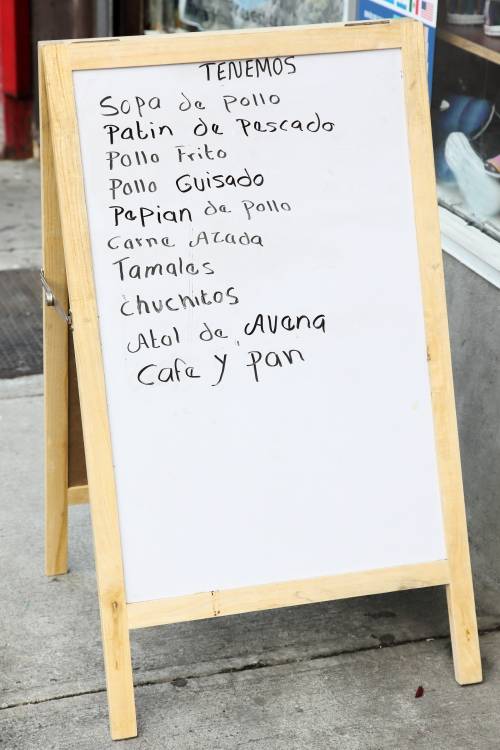 TENEMOS
Sopa de pollo
Patin de Pescado
Pollo Frito
Pollo Guisado
Pepian de pollo
Carne Azada
Tamales
chuchitos
Atol de Avena
Cafe y pan